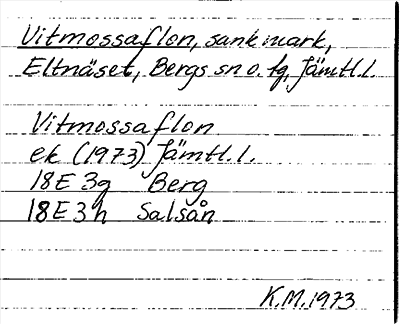 Vitmossaflon, sank mark,
Eltnäset, Bergs sn o. tg, Jämtl.l.
Vitmossaflon
ek (1973) Jämtl.l.
18E 3g Berg
18E 3h Salsån
K.M. 1973